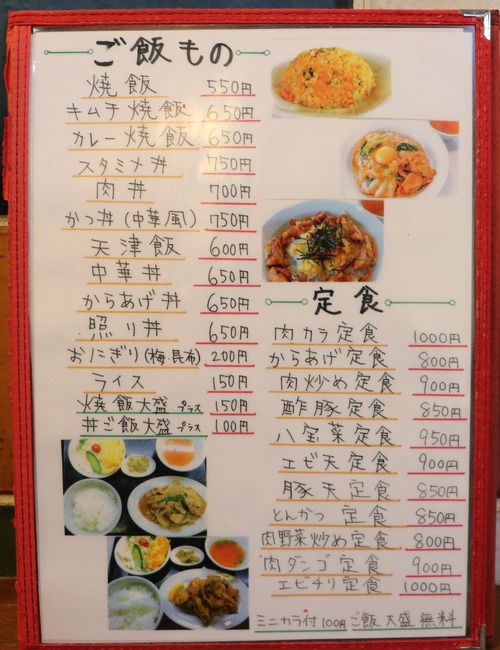 ご飯もの
焼飯 550円
キムチ焼飯 650円
カレー焼飯 650円
スタミナ丼 750円
肉丼 700円
かつ丼(中華風) 750円
天津飯 600円
中華丼 650円
からあげ丼 650円
照り丼 650円
おにぎり(梅・昆布) 200円
ライス 150円
焼飯大盛プラス 150円
丼ご飯大盛プラス 100円
定食
肉カラ定食 1000円
からあげ定食 800円
肉炒め定食 900円
酢豚定食 850円
八宝菜定食 950円
エビ天定食 900円
豚天定食 850円
とんかつ定食 850円
肉野菜炒め定食 800円
肉ダンゴ定食 900円
エビチリ定食 1000円
ミニカラ付100円 ご飯大盛無料